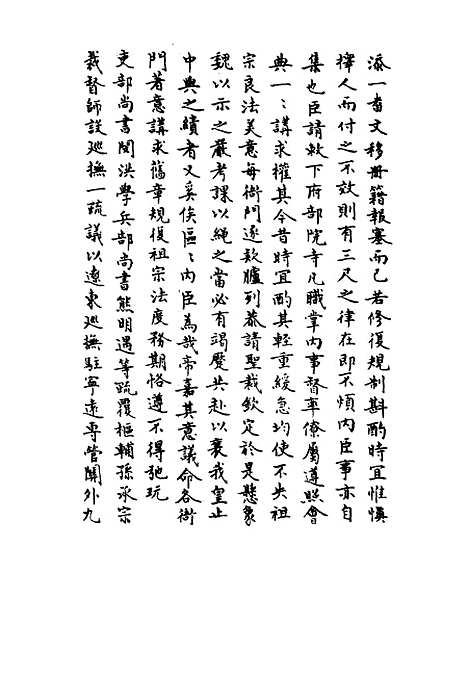 添一畨文移冊籍報塞而已若修復規制斟酌時宜惟慎
擇人而付之不效則有三尺之律在即不煩內臣事亦自
集也臣請敕下府部院寺凡職掌內事督率僚屬遵照會
典一ヽ講求權其今昔時宜酌其輕重緩急均使不失祖
宗良法美意每衙門逐款臚列恭請聖裁欽定於是懸象
魏以示之嚴考課以繩之當必有竭蹷共赴以襄我皇上
中興之績者又奚俟區ヽ內臣為哉帝嘉其意議命各衙
門著意講求舊章規復祖宗法度務期恪遵不得弛玩
吏部尚書閔洪學兵部尚書熊明遇等疏覆樞輔孫承宗
裁督師設巡撫一疏議以遼東巡撫駐寧遠專管關外九